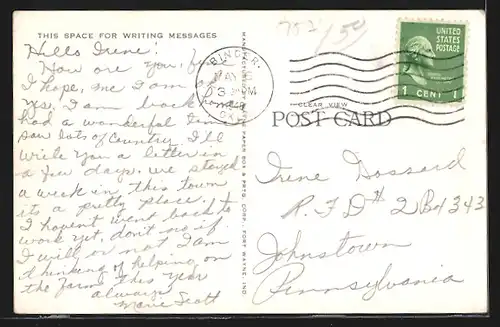 THIS SPACE FOR WRITING MESSAGES
Hello Irene!
How are you, fine
I hope, me I am
yes, I am back home
had a wonderful time
saw lots of Country. I'll
write you a letter in
a few days. we stayed
a week in this town
its a pretty place.
I havent went back to
work yet, don't no if
I will or not I am
thinking of helping on
the farm this year
always
Marie Scott
CORP., FORT WAYNE, IND.
BINGER
MAY
3 PM
OKLA
UNITED
STATES
POSTAGE
1 CENT 1
CLEAR VIEW
POST CARD
Irene Gossard
R.F.D # 2 Bx 343
Johnstown
Pennsylvania